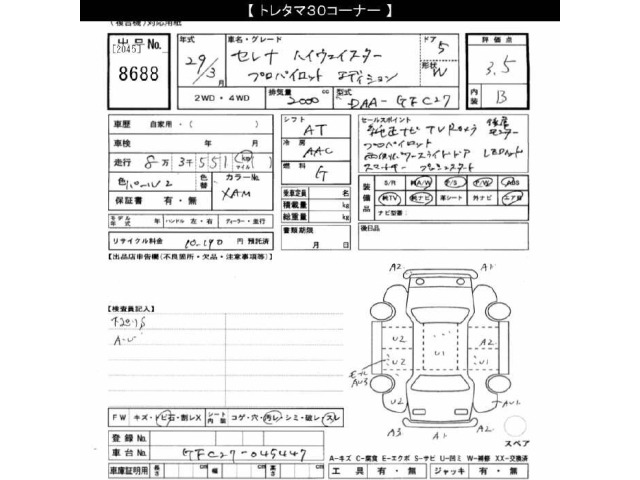 【 トレタマ30コーナー 】
(複合機)対応用紙
出品No.
[2045]
8688
年式 車名・グレード ドア 評価点
29/3月 セレナ ハイウェイスター 5 3.5
プロパイロット エディション 形状 W
2WD・4WD 排気量 2000 cc 型式 DAA-GFC27 内装 B
車歴 自家用・( )
車検 年 月
走行 8万3千551 km マイル
色 パール2 色替 カラーNo. XAM
保証書 有・無
モデル年式 年 ハンドル 左・右 ディーラー・並行
リサイクル料金 10,190 円 預託済
シフト AT
冷房 AAC
燃料 G
乗車定員 名
積載量 kg
総重量 kg
書類期限
月 日
セールスポイント
純正ナビ TV カメラ
プロパイロット
両側パワースライドドア LEDヘッド
スマートキー プッシュスタート
装備品 S/R A/W P/S P/W ABS
純TV 純ナビ 革シート 外ナビ エアB
ナビ型番:
後日品
【出品店申告欄(不良箇所・欠品・注意事項等)】
【検査員記入】
A2 A1
U2 U1 U2 U1
U2 U2
AU3 AU1
A3 A2
スペア
FW キズ・トビ石・割レX シート内装 コゲ・穴・汚レ・シミ・破レ・スレ
登録No.
車台No. GFC27-045447
車庫証明用 長さ cm 幅 cm 高さ cm
A-キズ C-腐食 E-エクボ S-サビ U-凹ミ W-補修 XX-交換済
工具 有・無 ジャッキ 有・無